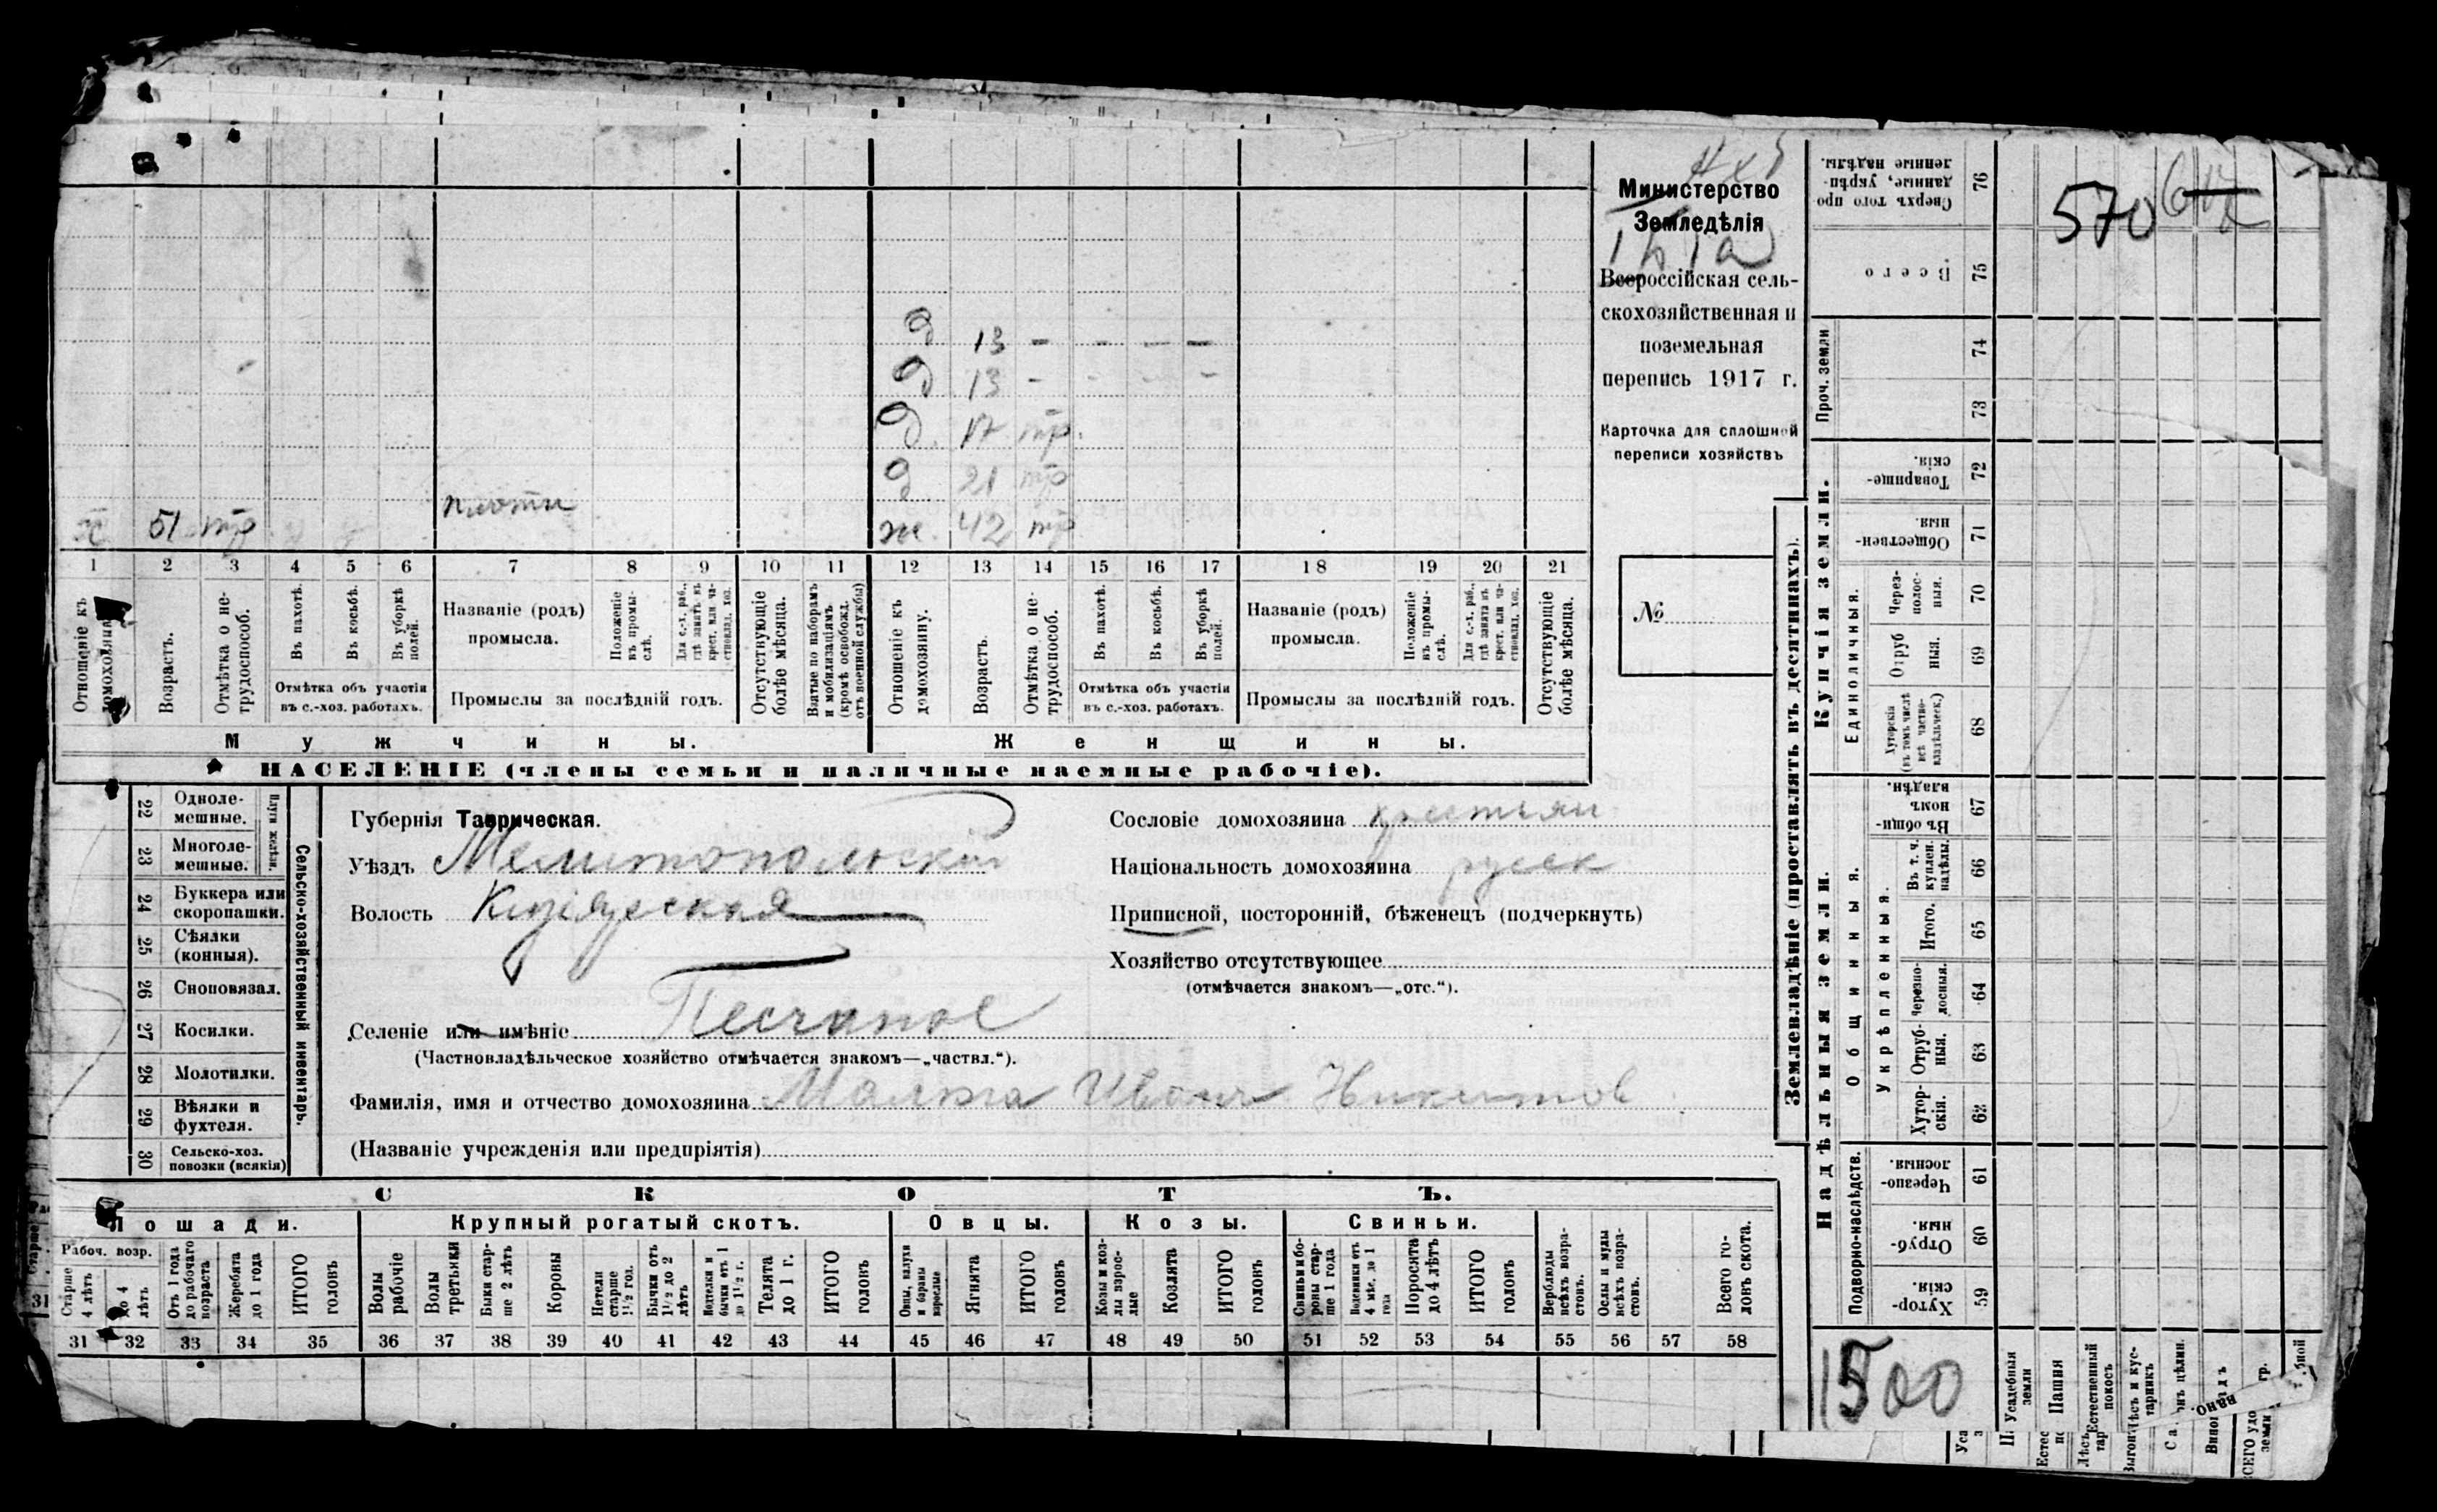 Министерство
Земледѣлія
Всероссійская сель-
скохозяйственная и
поземельная
перепись 1917 г.
Карточка для сплошной
переписи хозяйствъ
№
570
д 13 — — — —
д 13 — — — —
д. 17 тр.
д 21 тр
51 тр плотн ж. 42 тр
1 2 3 4 5 6 7 8 9 10 11 12 13 14 15 16 17 18 19 20 21
Отношеніе къ домохозяину
Возрастъ.
Отмѣтка о не-
трудоспособ.
Въ пахотѣ.
Въ косьбѣ.
Въ уборкѣ
полей.
Отмѣтка объ участіи
въ с.-хоз. работахъ.
Названіе (родъ)
промысла.
Положеніе
въ промы-
слѣ.
Для с.-х. раб.,
гдѣ занятъ въ
крест. или ча-
стновлад. хоз.
Промыслы за послѣдній годъ.
Отсутствующіе
болѣе мѣсяца.
Взятые по наборамъ
и мобилизаціямъ
(кромѣ освобожд.
отъ военной службы)
Отношеніе къ
домохозяину.
Возрастъ.
Отмѣтка о не-
трудоспособ.
Въ пахотѣ.
Въ косьбѣ.
Въ уборкѣ
полей.
Отмѣтка объ участіи
въ с.-хоз. работахъ.
Названіе (родъ)
промысла.
Положеніе
въ промы-
слѣ.
Для с.-х. раб.,
гдѣ занята въ
крест. или ча-
стновлад. хоз.
Промыслы за послѣдній годъ.
Отсутствующіе
болѣе мѣсяца.
Мужчины.
Женщины.
НАСЕЛЕНІЕ (члены семьи и наличные наемные рабочіе).
22 Однолемешные.
23 Многолемешные.
Плуги желѣзн.
24 Буккера или
скоропашки.
25 Сѣялки
(конныя).
26 Сноповязал.
27 Косилки.
28 Молотилки.
29 Вѣялки и
фухтеля.
30 Сельско-хоз.
повозки (всякія)
Сельско-хозяйственный инвентарь.
Губернія Таврическая.
Уѣздъ Мелитопольскій
Волость Кизіярская
Селеніе или имѣніе Песчаное
(Частновладѣльческое хозяйство отмѣчается знакомъ—„частвл.“).
Фамилія, имя и отчество домохозяина Малта Иванъ Никитов
(Названіе учрежденія или предпріятія)
Сословіе домохозяина крестьян
Національность домохозяина русск
Приписной, посторонній, бѣженецъ (подчеркнуть)
Хозяйство отсутствующее
(отмѣчается знакомъ—„отс.“).
СКОТЪ.
Лошади.
Крупный рогатый скотъ.
Овцы.
Козы.
Свиньи.
Рабоч. возр.
Старше
4 лѣтъ
до 4
лѣтъ
Отъ 1 года
до рабочаго
возраста
Жеребята
до 1 года
ИТОГО
головъ
Волы
рабочіе
Волы
третьяки
Быки стар-
ше 2 лѣтъ
Коровы
Нетели
старше
1½ год.
Бычки отъ
1½ до 2
лѣтъ
Нетелки и
бычки отъ 1
до 1½ г.
Телята
до 1 г.
ИТОГО
головъ
Овцы, валухи
и бараны
взрослые
Ягнята
ИТОГО
головъ
Козы и коз-
лы взрос-
лые
Козлята
ИТОГО
головъ
Свиньи и бо-
ровы стар-
ше 1 года
Подсвинки отъ
4 мѣс. до 1
года
Поросята
до 4 лѣтъ
ИТОГО
головъ
Верблюды
всѣхъ возра-
стовъ.
Ослы и мулы
всѣхъ возра-
стовъ.
Всего го-
ловъ скота.
31 32 33 34 35 36 37 38 39 40 41 42 43 44 45 46 47 48 49 50 51 52 53 54 55 56 57 58
Землевладѣніе (проставлять въ десятинахъ).
Купчія земли.
Надѣльныя земли.
76 Сверхъ того про
данные, укрѣп-
ленные надѣлы.
75 Всего
Проч. земли
74
73
72 Товарище-
скія.
71 Обществен-
ныя.
Единоличныя.
70 Через-
полос-
ныя.
69 Отруб
ныя.
68 Хуторскія
(въ томъ числѣ
всѣ частно-
владѣльческ.)
Общинныя.
67 Въ общи-
номъ
владѣн.
66 Въ т. ч.
куплен.
надѣлы.
Укрѣпленныя.
65 Итого.
64 Черезпо-
лосныя.
63 Отруб-
ныя.
62 Хутор-
скія.
Подворно-наслѣдств.
61 Черезпо-
лосныя.
60 Отруб-
ныя.
59 Хутор-
скія.
1500
Усадебныя
земли
Пашня
Естественный
покосъ